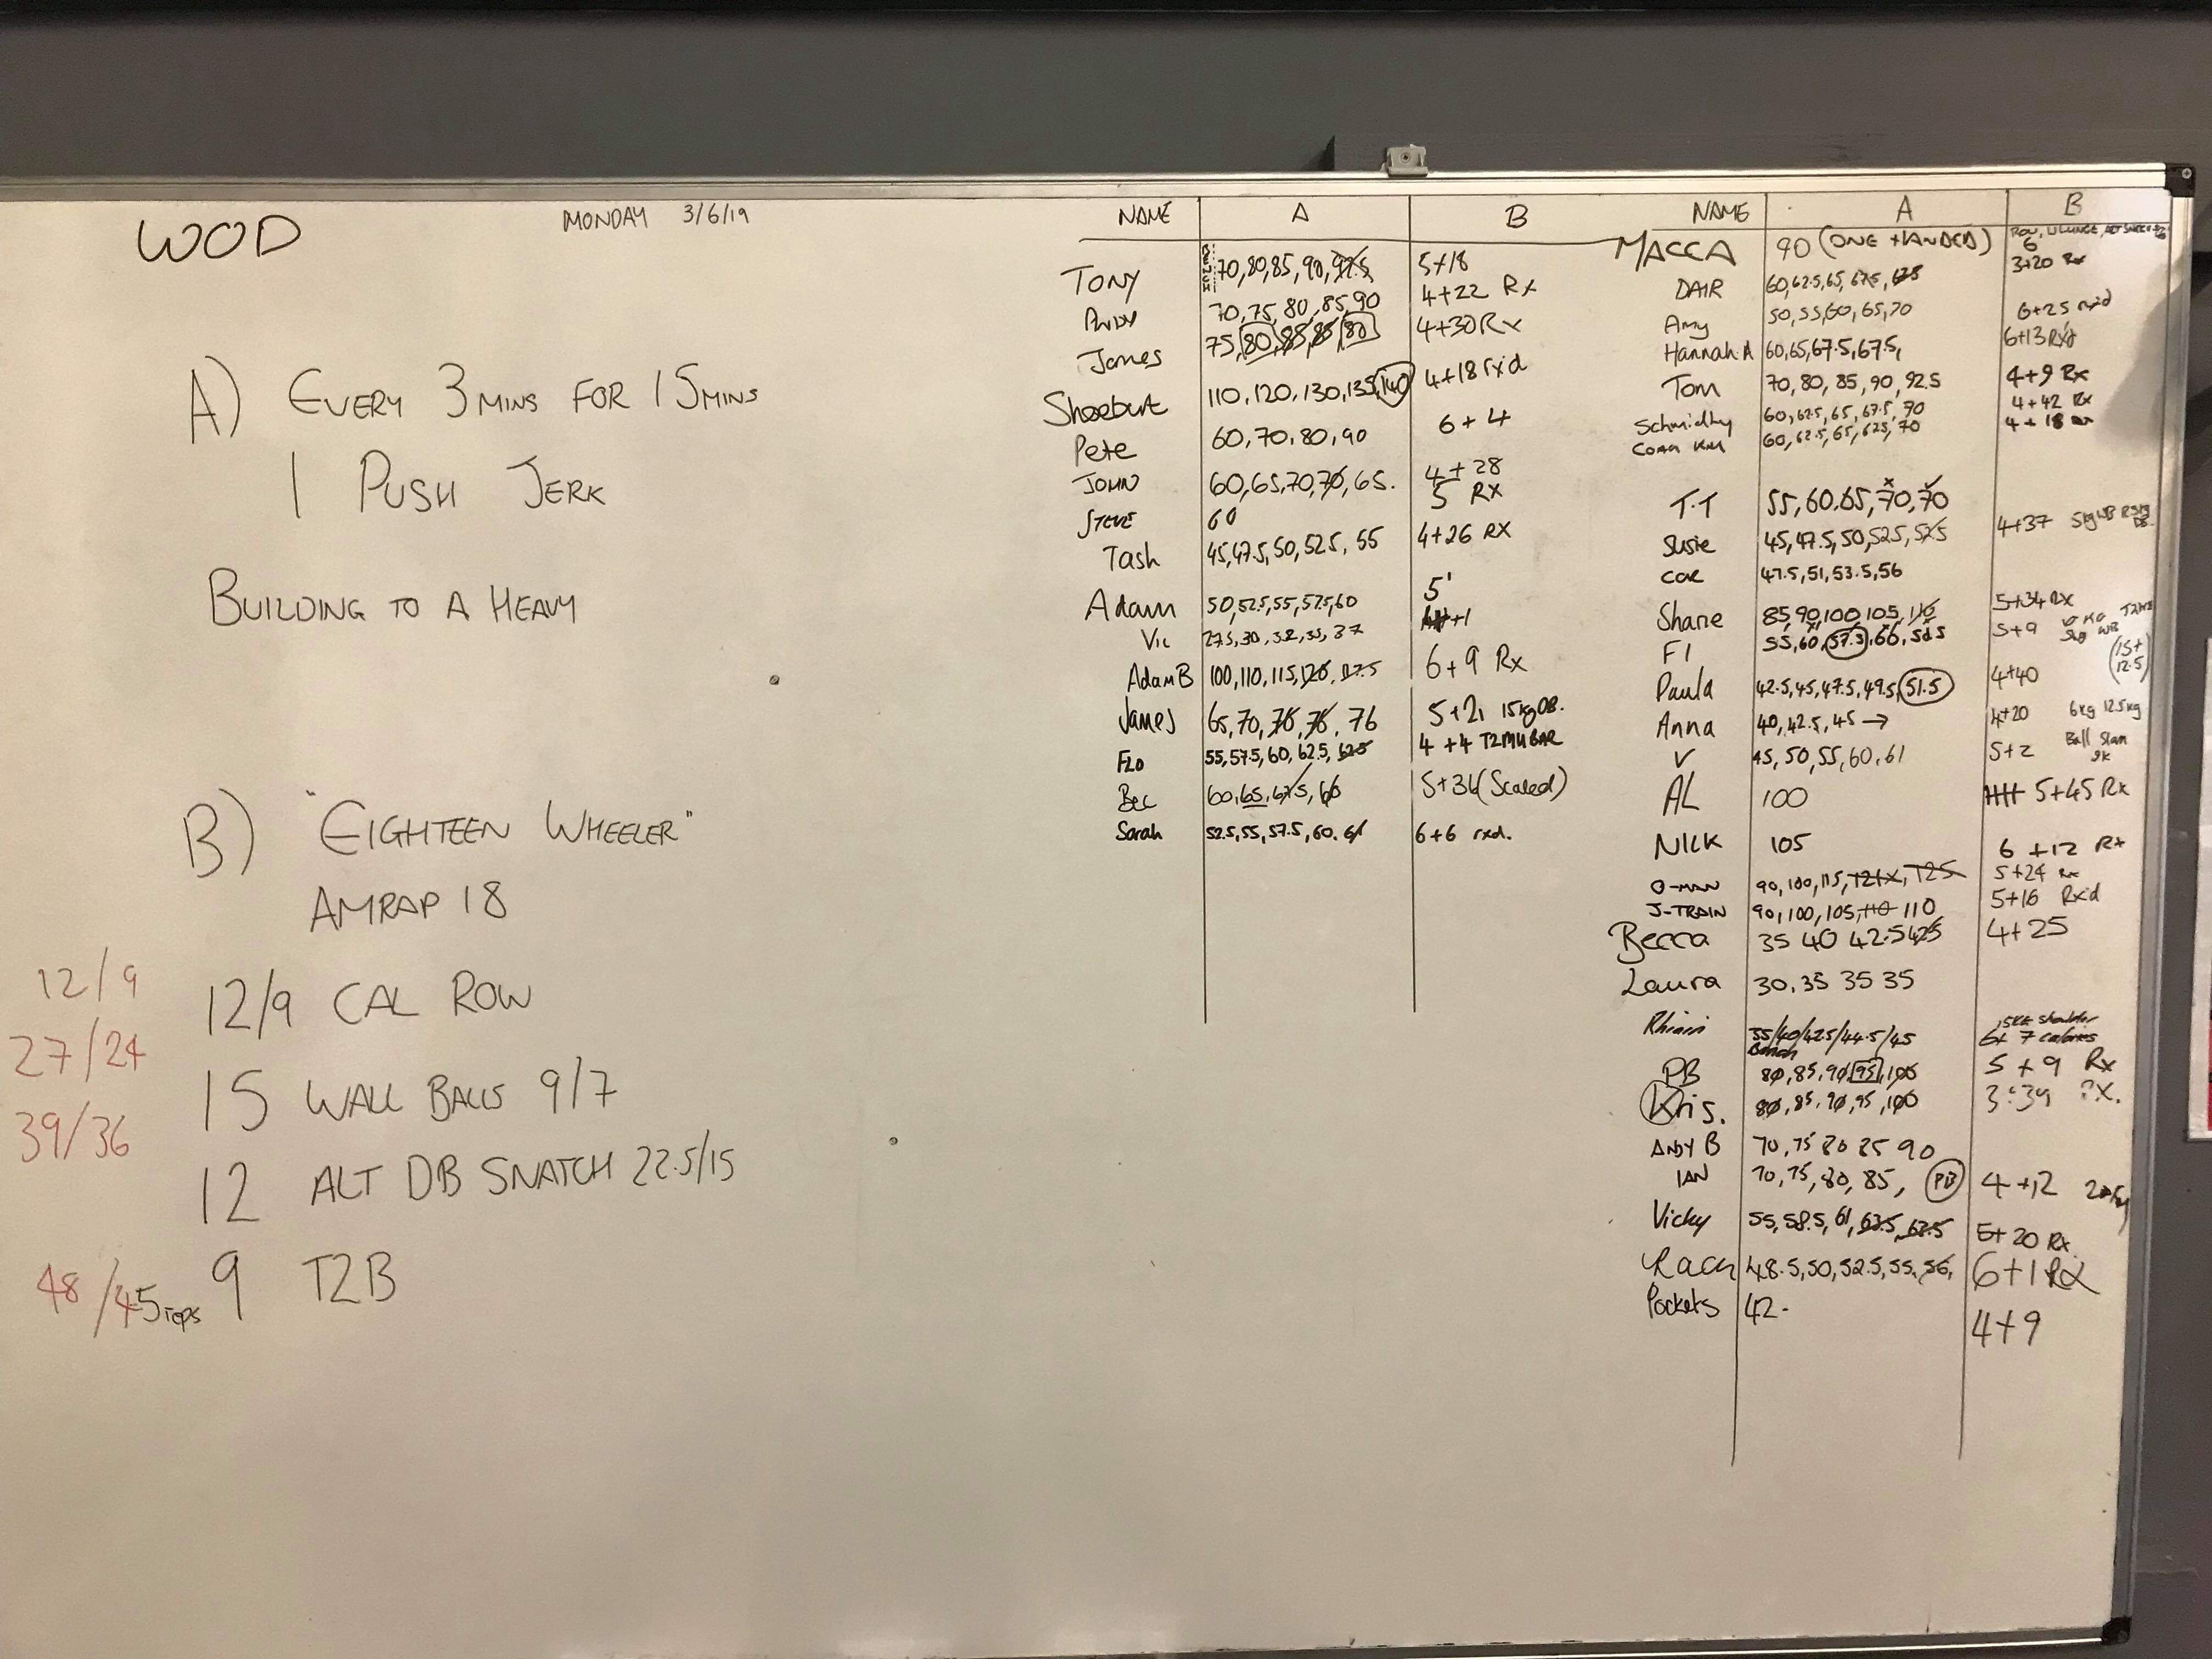 WOD MONDAY 3/6/19
A) EVERY 3 MINS FOR 15 MINS
1 PUSH JERK
BUILDING TO A HEAVY
B) "EIGHTEEN WHEELER"
AMRAP 18
12/9 12/9 CAL ROW
27/24
15 WALL BALLS 9/7
39/36
12 ALT DB SNATCH 22.5/15
48/45 reps 9 T2B
NAME A B
TONY BENCH 70, 80, 85, 90, 97.5 5+18
ANDY 70, 75, 80, 85, 90 4+22 Rx
James 75, 80, 85, 85, 80 4+30 Rx
110, 120, 130, 135, 140 4+18 rxd
Pete 60, 70, 80, 90 6+4
JOHN 60, 65, 70, 70, 65. 4+28
STEVE 60 5 RX
Tash 45, 47.5, 50, 52.5, 55 4+26 RX
Adam 50, 52.5, 55, 57.5, 60 5
Vic 27.5, 30, 32, 35, 37 +1
Adam B 100, 110, 115, 120, 6+9 Rx
James 65, 70, 76, 76, 76 5+21 15kg DB.
FLO 55, 57.5, 60, 62.5, 62.5 4+4 BAR
Bec 60, 65, 67.5, 5+36 (Scaled)
Sarah 52.5, 55, 57.5, 60, 61 6+6 rxd.
NAME A B
MACCA 90 (ONE HANDED) ROW, 6
60, 62.5, 65, 67.5, 3+20 Rx
Amy 50, 55, 60, 65, 70 6+25 rxd
Hannah A 60, 65, 67.5, 67.5, 6+13 Rxd
Tom 70, 80, 85, 90, 92.5 4+9 Rx
Schmidty 60, 62.5, 65, 67.5, 70 4+42 Rx
60, 62.5, 65, 70 4+18
T.T 55, 60, 65, 70, 70
Susie 45, 47.5, 50, 52.5, 52.5 4+37
47.5, 51, 53.5, 56
Shane 85, 90, 100, 105, 110 5+34 Rx
FI 55, 60, 57.5, 5+9
Paula 42.5, 45, 47.5, 49.5, 51.5 4+40 (15+ 12.5)
Anna 40, 42.5, 45 → 4+20 6kg 12.5kg
V 45, 50, 55, 60, 61 5+2 Ball Slam
AL 100 5+45 Rx
NICK 105 6+12 Rx
O-MAN 90, 100, 115, 125 5+24 Rx
J-TRAIN 90, 100, 105, 110 110 5+16 Rxd
Becca 35 40 42.5 42.5 4+25
Laura 30, 35 35 35
35/40/42.5/44.5/45 shoulder 6+7 calories
PB Bench 80, 85, 90, 95, 100 5+9 Rx
Kris. 80, 85, 90, 95, 100 3+39 RX.
ANDY B 70, 75 80 85 90
IAN 70, 75, 80, 85, PB 4+12
Vicky 55, 58.5, 61, 63.5, 63.5 5+20 Rx
Rach 48.5, 50, 52.5, 55, 56, 6+1 RX
Pockets 42- 4+9